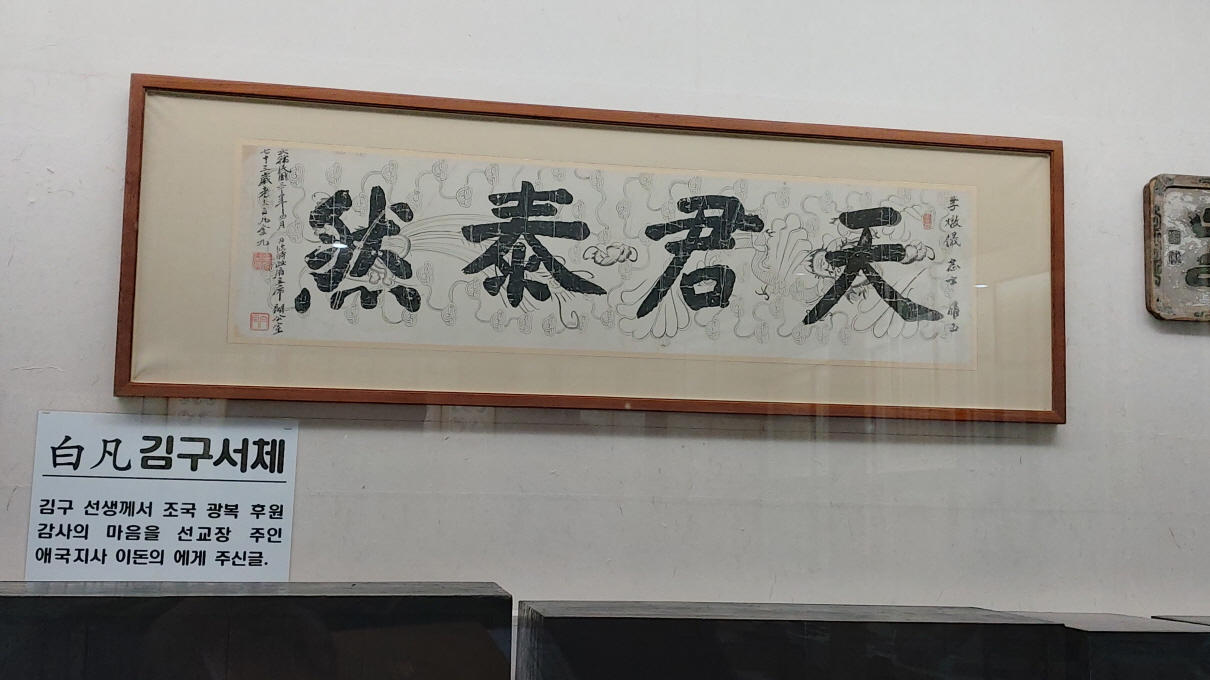 天君泰然
李燉儀 志士 雅正
大韓民國三十年四月
七十三歲 老人 白凡 金九
白凡 김구서체
김구 선생께서 조국 광복 후원
감사의 마음을 선교장 주인
애국지사 이돈의 에게 주신글.